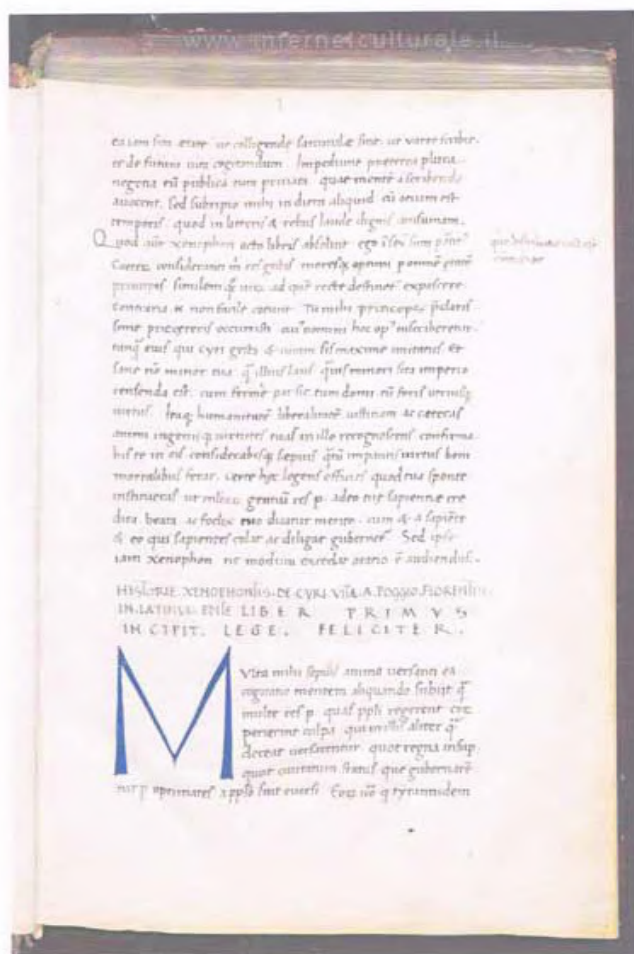 www.internetculturale.it
1
ea iam sim etate ut colligende sarcinulae sint. ut vates scribit.
et de futura vita cogitandum. Impediunt praeterea plura
negotia tū publica tum privata quae mentē a scribendo
avocent. sed subripio mihi in diem aliquid cū otium est
temporis quod in litteris & rebus laude dignis assumam.
Quod aūt xenephon octo libris absoluit ego
Cuncta consideranti m̄ res gestas moresq̄ optimi
principis similem ad quē recte destinet exposcere
sententia & non facile Tu mihi princeps
occurristi cui' nomini hoc op' inscriberetur
tanq̄ eius qui cyri gesta & vitam sis maxime imitatus. Et
sane nō minor tua q̄ illius laus sita imperio
censenda est. cum ferme par sit tum domi tū foris utriusq̄
virtus. Itaq̄ humanitatē liberalitatē iustitiam ac ceteras
animi ingeniiq̄ virtutes tuas in illo recognoscens confirma
bis te in eis considerabisq̄ sepius imperantis virtus boni
mortalibus ferat. verte hec legens efficies quod tua sponte
ut res p. adeo tue sapientie cre
dita. beata ac foelix tuo dicatur merito. cum & a sapiēte
& eo qui sapientes colat ac diligat gubernet. Sed ipse
iam xenophon ne modum excedat oratio ē audiendus.
HISTORIE XENOFONTIS. DE CYRI VITA. A. POGGIO. FLORENTINO
IN. LATINUM. LIBER PRIMVS
INCIPIT. LEGE. FELICITER.
MVlta mihi sepius animo versanti ea
cogitatio mentem aliquando subijt q̄
multe res p. quas ppli regerent
perierint culpa qui in illis aliter q̄
deceat versarentur. quot regna insup
quot civitatum status que gubernarē
tur p optimates a pplo sint eversi. Eos v̄o q tyrannidem